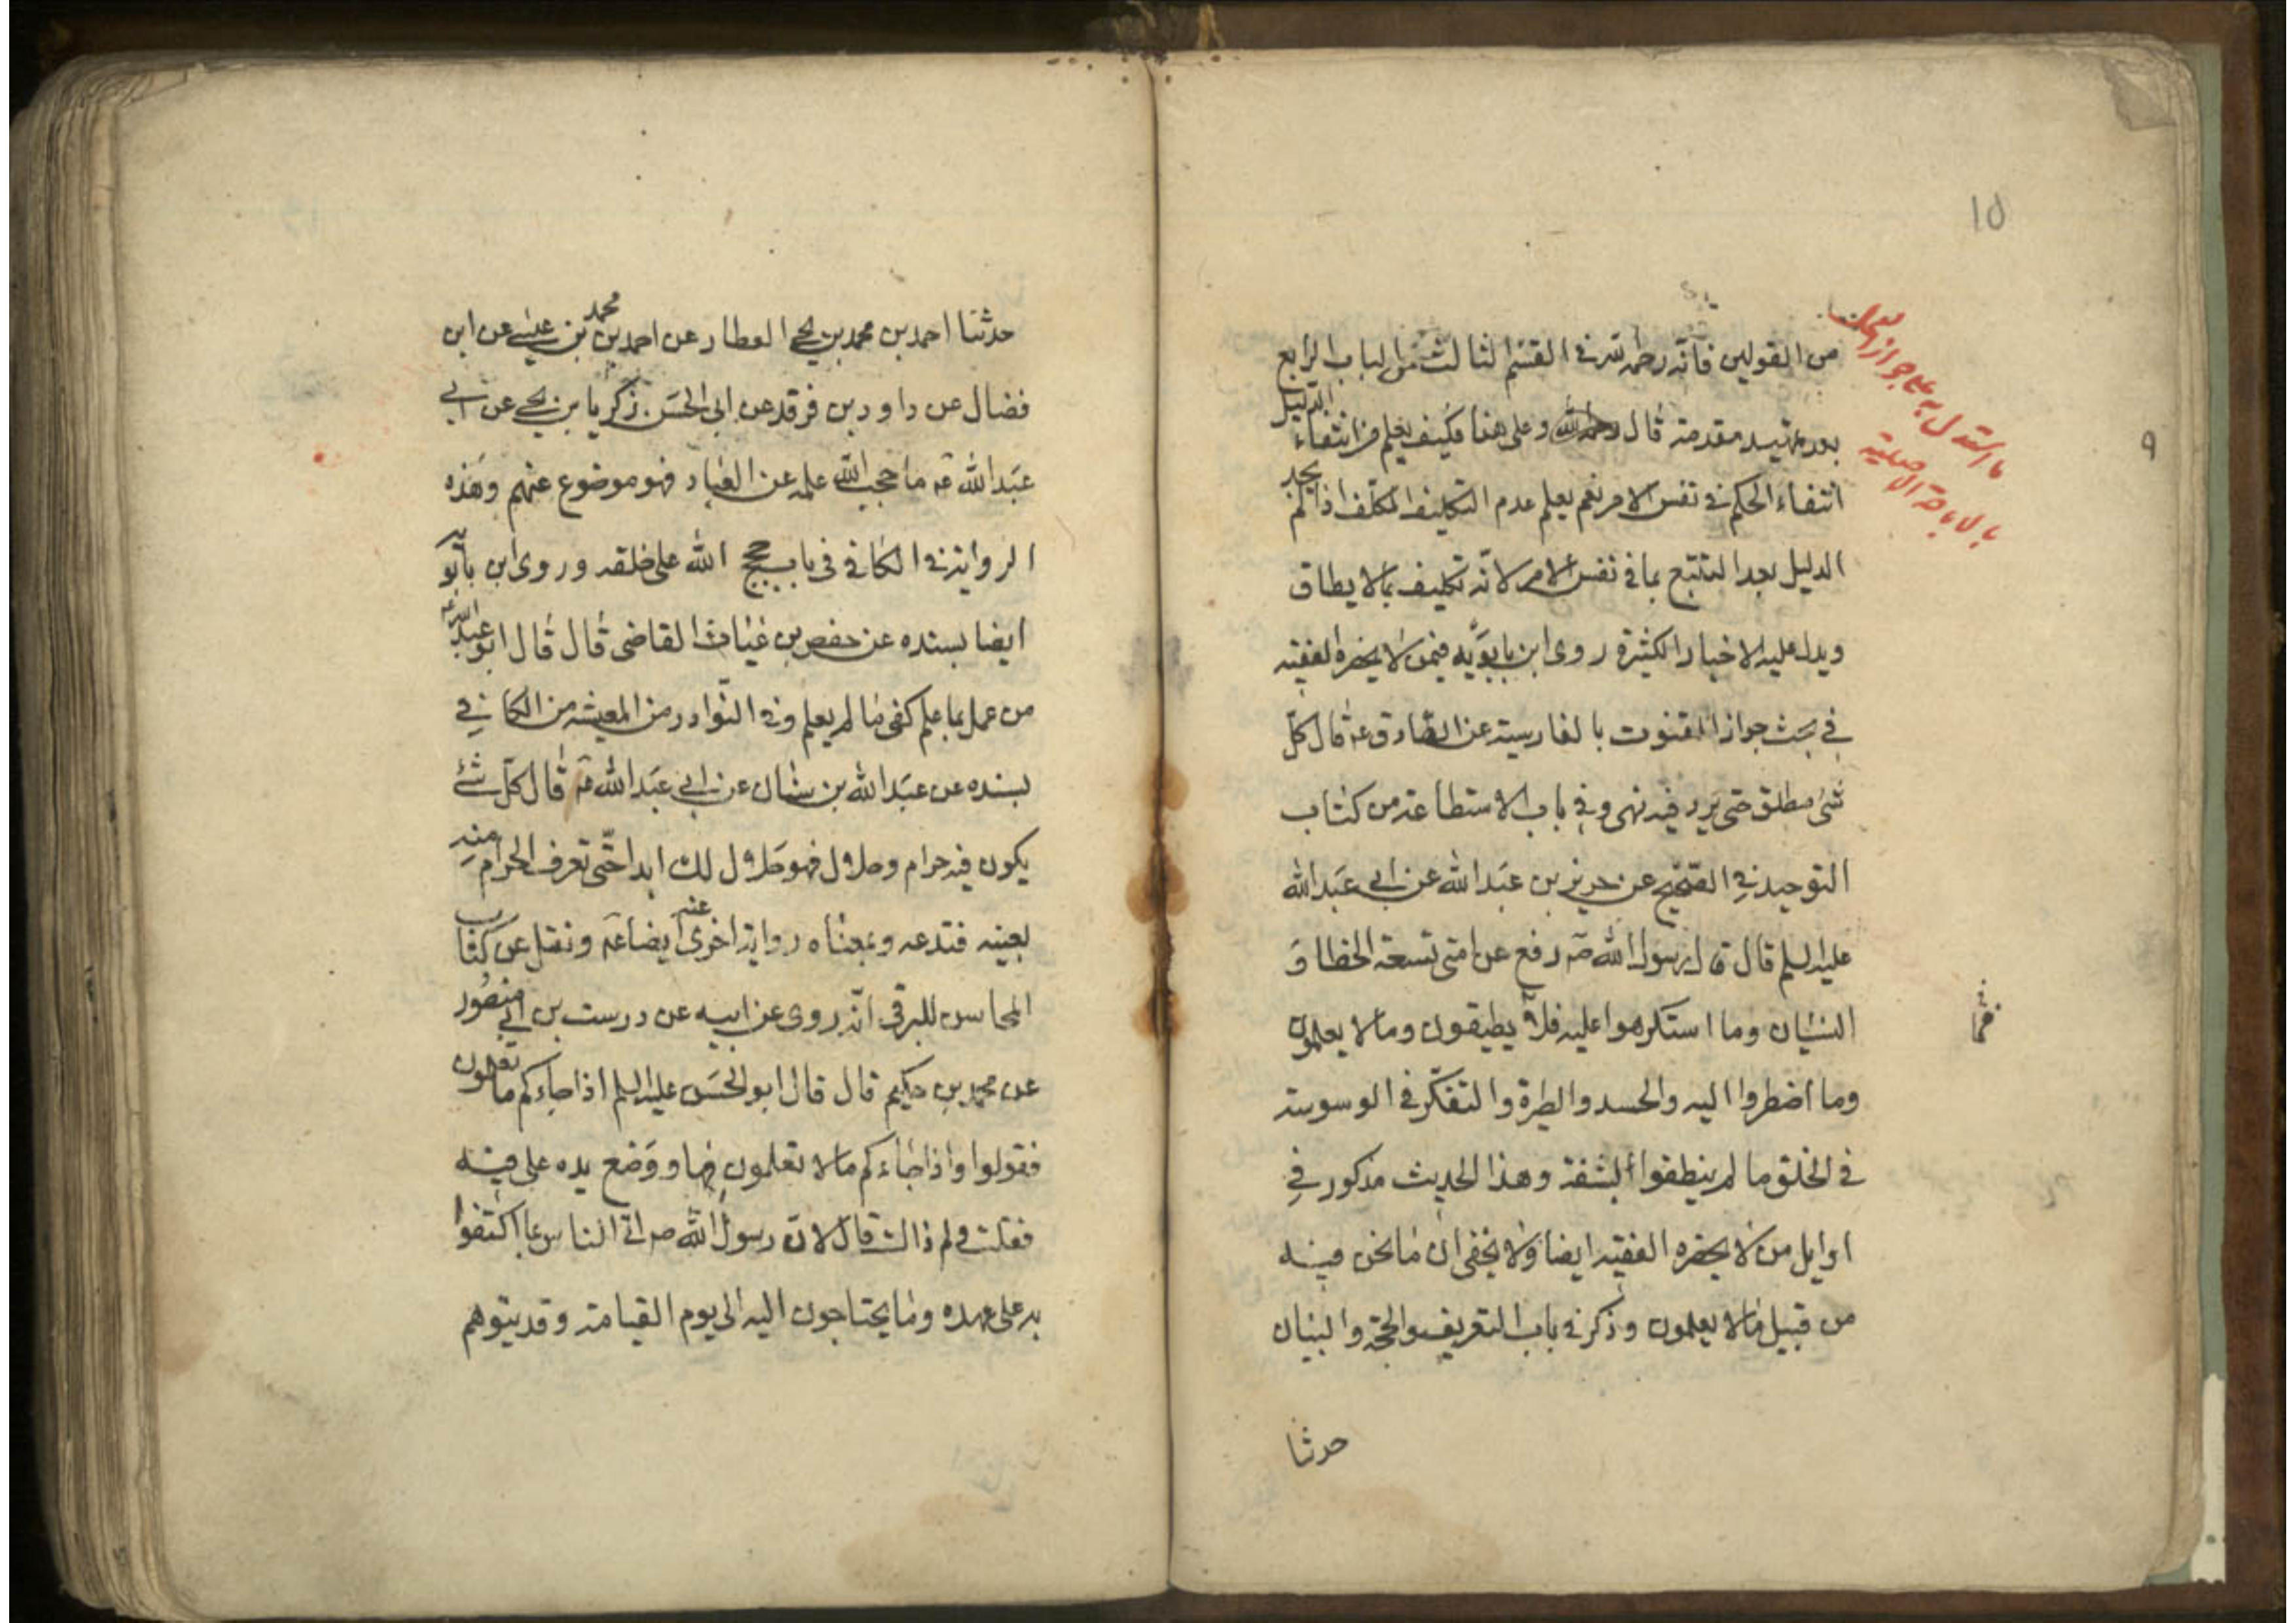 10
9
ما استدل به على جواز التمسك
بالاباحة الاصلية
من القولين فانه رحمه الله في القسم الثالث من الباب الرابع
بعد تمهيد مقدمة قال رحمه الله وعلى هذا فكيف يعلم من انتفاء الدليل
انتفاء الحكم في نفس الامر نعم يعلم عدم التكليف المكلف اذا لم يجد
الدليل بعد التتبع بما في نفس الامر لانه تكليف بما لا يطاق
ويدل عليه الاخبار الكثيرة روى ابن بابويه فيمن لا يحضره الفقيه
في بحث جواز القنوت بالفارسية عن الصادق عه قال كل
شئ مطلق حتى يرد فيه نهى وفي باب الاستطاعة من كتاب
التوحيد في الصحيح عن حريز بن عبد الله عن ابي عبد الله
عليه السلم قال قال رسول الله صه رفع عن امتى تسعة الخطا و
النسيان وما استكرهوا عليه فلا يطيقون وما لا يعلمون
فما
وما اضطروا اليه والحسد والطيرة والتفكر في الوسوسة
في الخلق ما لم ينطقوا بشفة وهذا الحديث مذكور في
اوايل من لا يحضره الفقيه ايضا ولا يخفى ان ما نحن فيه
من قبيل ما لا يعلمون وذكر في باب التعريف والحجة والبيان
حدثنا
حدثنا احمد بن محمد بن يحيى العطار عن احمد بن محمد بن عيسى عن ابن
فضال عن داود بن فرقد عن ابى الحسن زكريا بن يحيى عن ابي
عبد الله عه ما حجب الله علمه عن العباد فهو موضوع عنهم وهذه
الرواية في الكافي في باب حجج الله على خلقه وروى ابن بابويه
ايضا بسنده عن حفص بن غياث القاضى قال قال ابو عبد الله عه
من عمل بما علم كفى ما لم يعلم وفي النوادر من المعيشه من الكافي
بسنده عن عبد الله بن سنان عن ابي عبد الله عه قال كل شئ
يكون فيه حرام وحلال فهو حلال لك ابدا حتى تعرف الحرام منه
بعينه فتدعه وبمعناه رواية اخرى عنه ايضا عه ونقل عن كتاب
المحاسن للبرقى انه روى عن ابيه عن درست بن ابي منصور
عن محمد بن حكيم قال قال ابو الحسن عليه السلم اذا جاءكم ما تعلمون
فقولوا واذا جاءكم ما لا تعلمون فها ووضع يده على فيه
فقلت ولم ذالك قال لان رسول الله صه اتى الناس بما اكتفوا
به على عهده وما يحتاجون اليه الى يوم القيامة وقد يتوهم